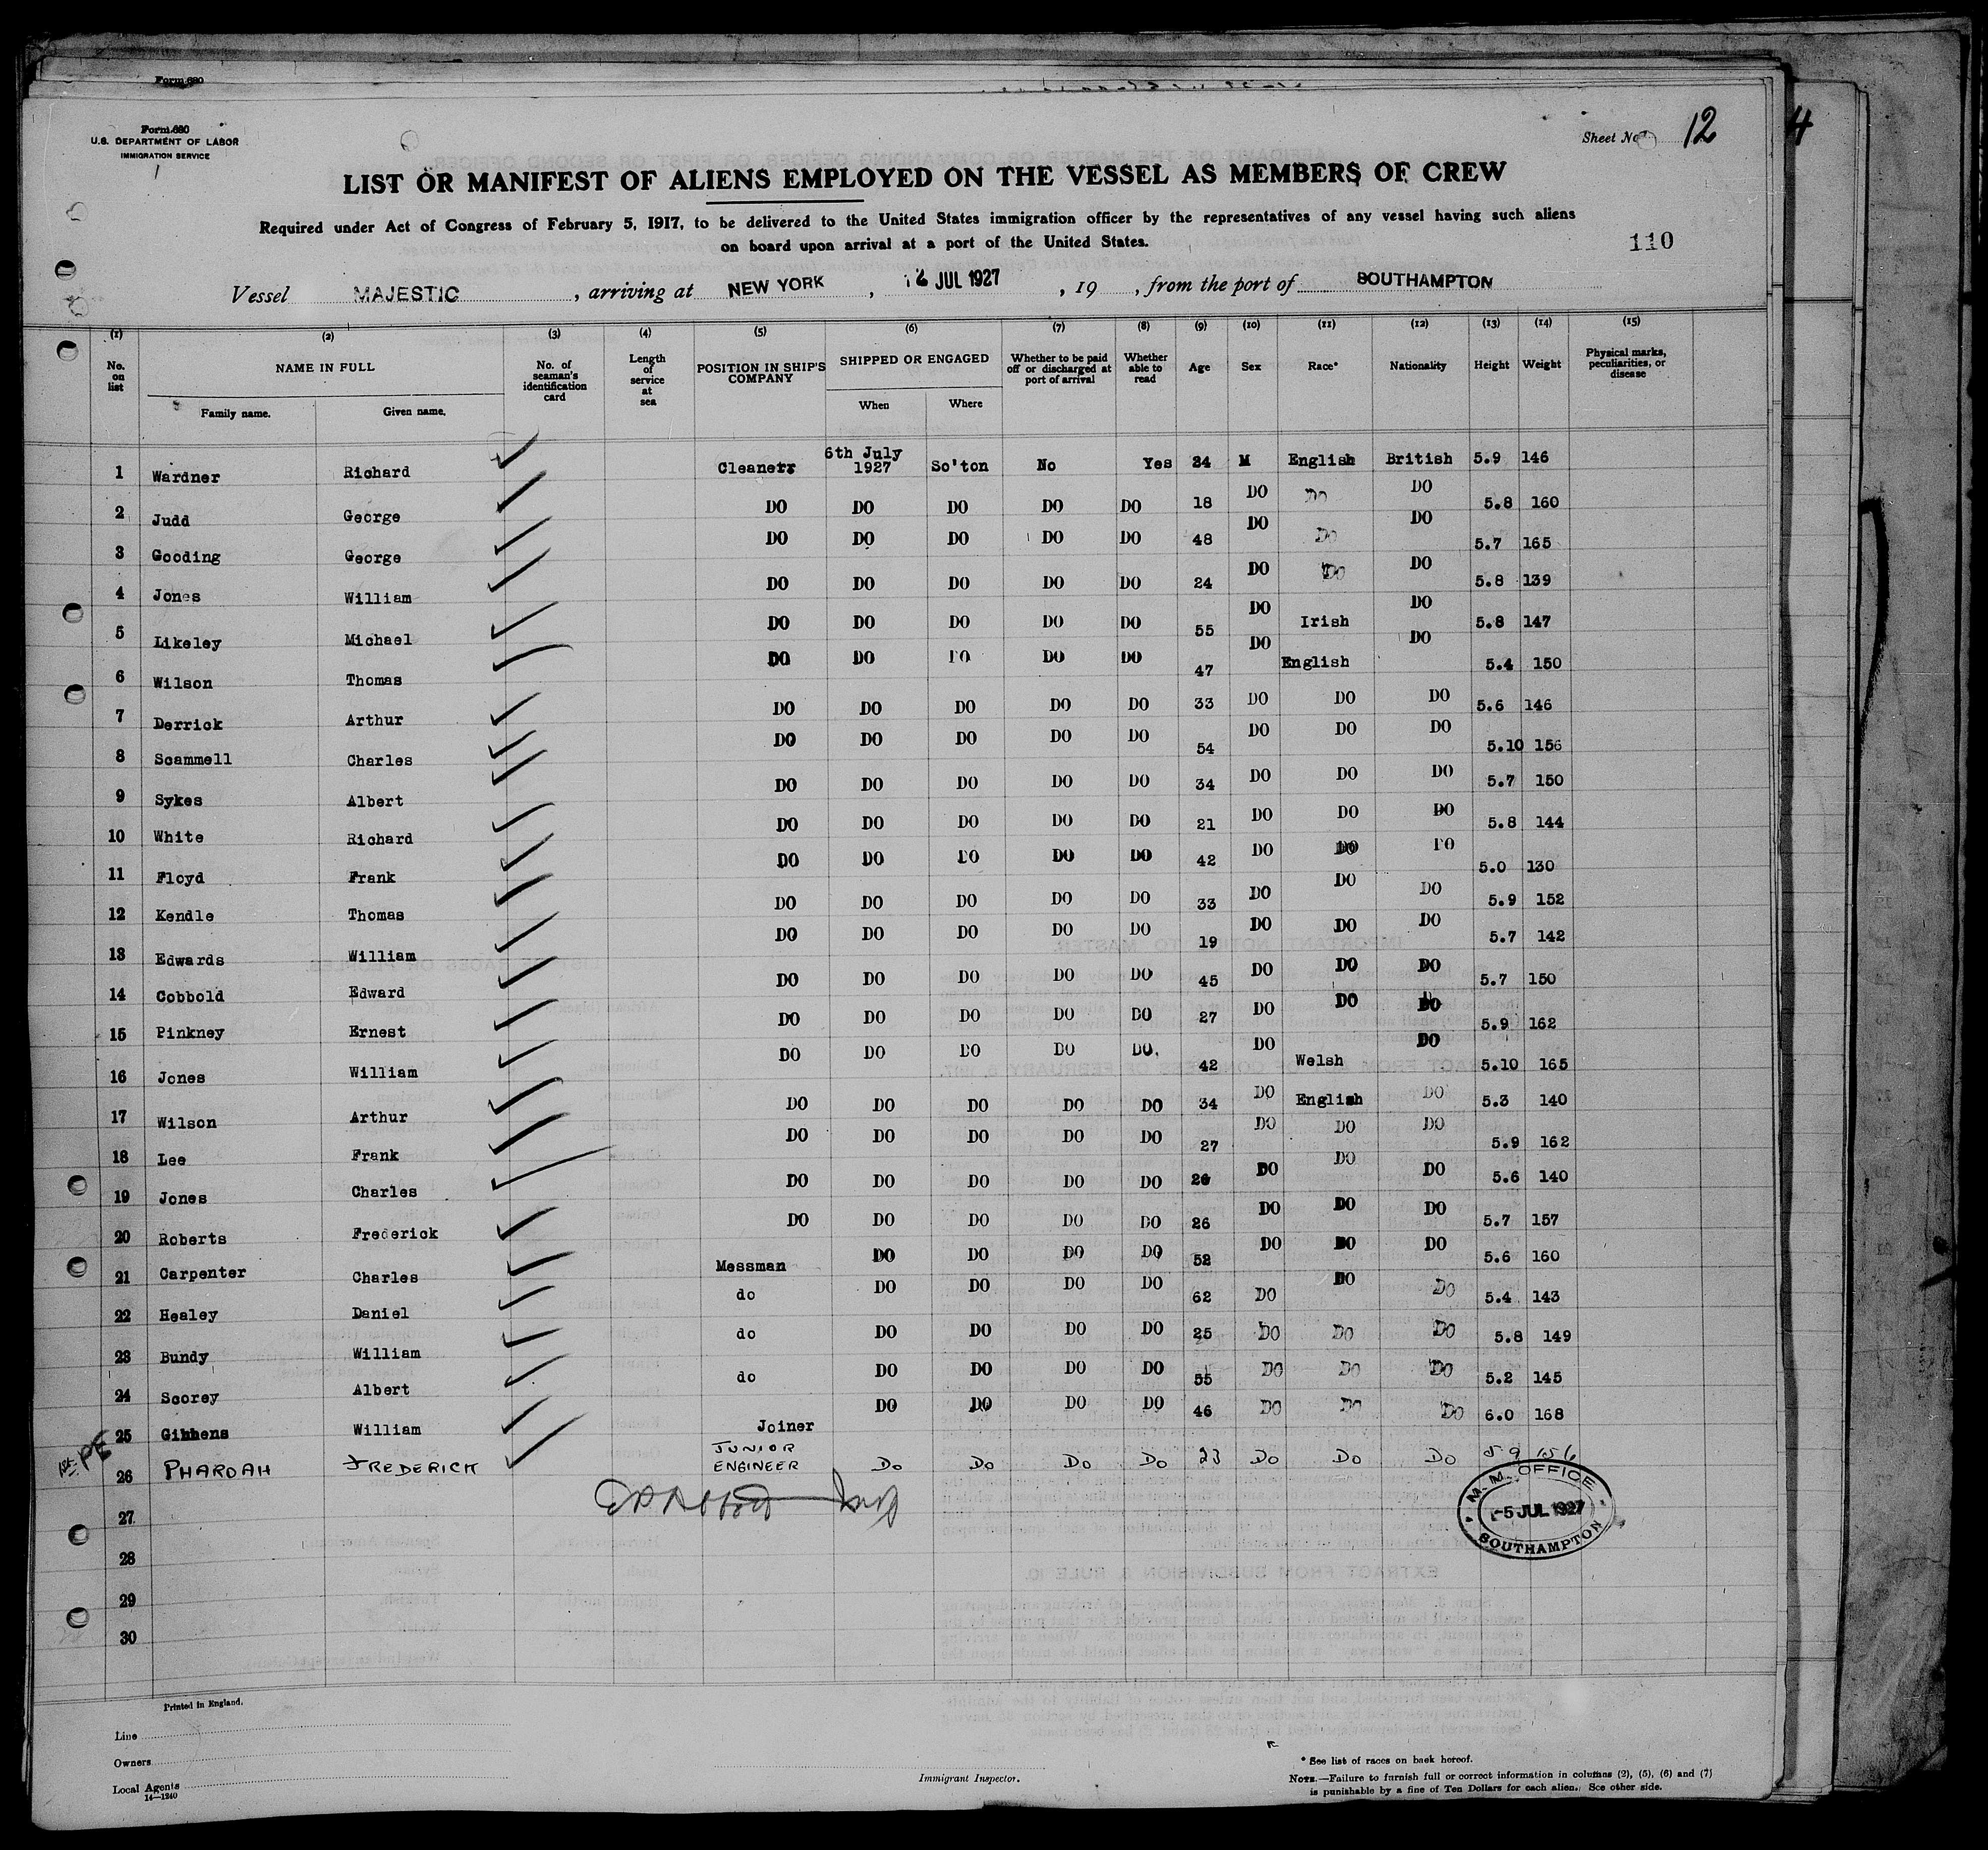 Form 680
Form 680
U.S. DEPARTMENT OF LABOR
IMMIGRATION SERVICE
Sheet No. 12
LIST OR MANIFEST OF ALIENS EMPLOYED ON THE VESSEL AS MEMBERS OF CREW
Required under Act of Congress of February 5, 1917, to be delivered to the United States immigration officer by the representatives of any vessel having such aliens
on board upon arrival at a port of the United States.
110
Vessel MAJESTIC, arriving at NEW YORK, 12 JUL 1927, 19 , from the port of SOUTHAMPTON
(1) (2) (3) (4) (5) (6) (7) (8) (9) (10) (11) (12) (13) (14) (15)
No. on list NAME IN FULL No. of seaman's identification card Length of service at sea POSITION IN SHIP'S COMPANY SHIPPED OR ENGAGED Whether to be paid off or discharged at port of arrival Whether able to read Age Sex Race* Nationality Height Weight Physical marks, peculiarities, or disease
Family name. Given name. When Where
1 Wardner Richard Cleaner 6th July 1927 So'ton No Yes 34 M English British 5.9 146
2 Judd George DO DO DO DO DO 18 DO Do DO 5.8 160
3 Gooding George DO DO DO DO DO 48 DO Do DO 5.7 165
4 Jones William DO DO DO DO DO 24 DO DO DO 5.8 139
5 Likeley Michael DO DO DO DO DO 55 DO Irish DO 5.8 147
6 Wilson Thomas DO DO DO DO DO 47 DO English DO 5.4 150
7 Derrick Arthur DO DO DO DO DO 33 DO DO DO 5.6 146
8 Scammell Charles DO DO DO DO DO 54 DO DO DO 5.10 156
9 Sykes Albert DO DO DO DO DO 34 DO DO DO 5.7 150
10 White Richard DO DO DO DO DO 21 DO DO DO 5.8 144
11 Floyd Frank DO DO DO DO DO 42 DO DO DO 5.0 130
12 Kendle Thomas DO DO DO DO DO 33 DO DO DO 5.9 152
13 Edwards William DO DO DO DO DO 19 DO DO DO 5.7 142
14 Cobbold Edward DO DO DO DO DO 45 DO DO DO 5.7 150
15 Pinkney Ernest DO DO DO DO DO 27 DO DO DO 5.9 162
16 Jones William DO DO DO DO DO. 42 DO Welsh DO 5.10 165
17 Wilson Arthur DO DO DO DO DO 34 DO English DO 5.3 140
18 Lee Frank DO DO DO DO DO 27 DO DO DO 5.9 162
19 Jones Charles DO DO DO DO DO 26 DO DO DO 5.6 140
20 Roberts Frederick DO DO DO DO DO 26 DO DO DO 5.7 157
21 Carpenter Charles Messman DO DO DO DO 52 DO DO DO 5.6 160
22 Healey Daniel do DO DO DO DO 62 DO DO DO 5.4 143
23 Bundy William do DO DO DO DO 25 DO DO DO 5.8 149
24 Scorey Albert do DO DO DO DO 55 DO DO DO 5.2 145
25 Gibbens William Joiner DO DO DO DO 46 DO DO DO 6.0 168
26 PHAROAH FREDERICK JUNIOR ENGINEER Do Do Do Do 23 Do Do Do 5 9 156
27
28
29
30
M. M. OFFICE
-5 JUL 1927
SOUTHAMPTON
Printed in England.
Line
Owners
Local Agents
14—1240
Immigrant Inspector.
* See list of races on back hereof.
NOTE.—Failure to furnish full or correct information in columns (2), (5), (6) and (7)
is punishable by a fine of Ten Dollars for each alien. See other side.